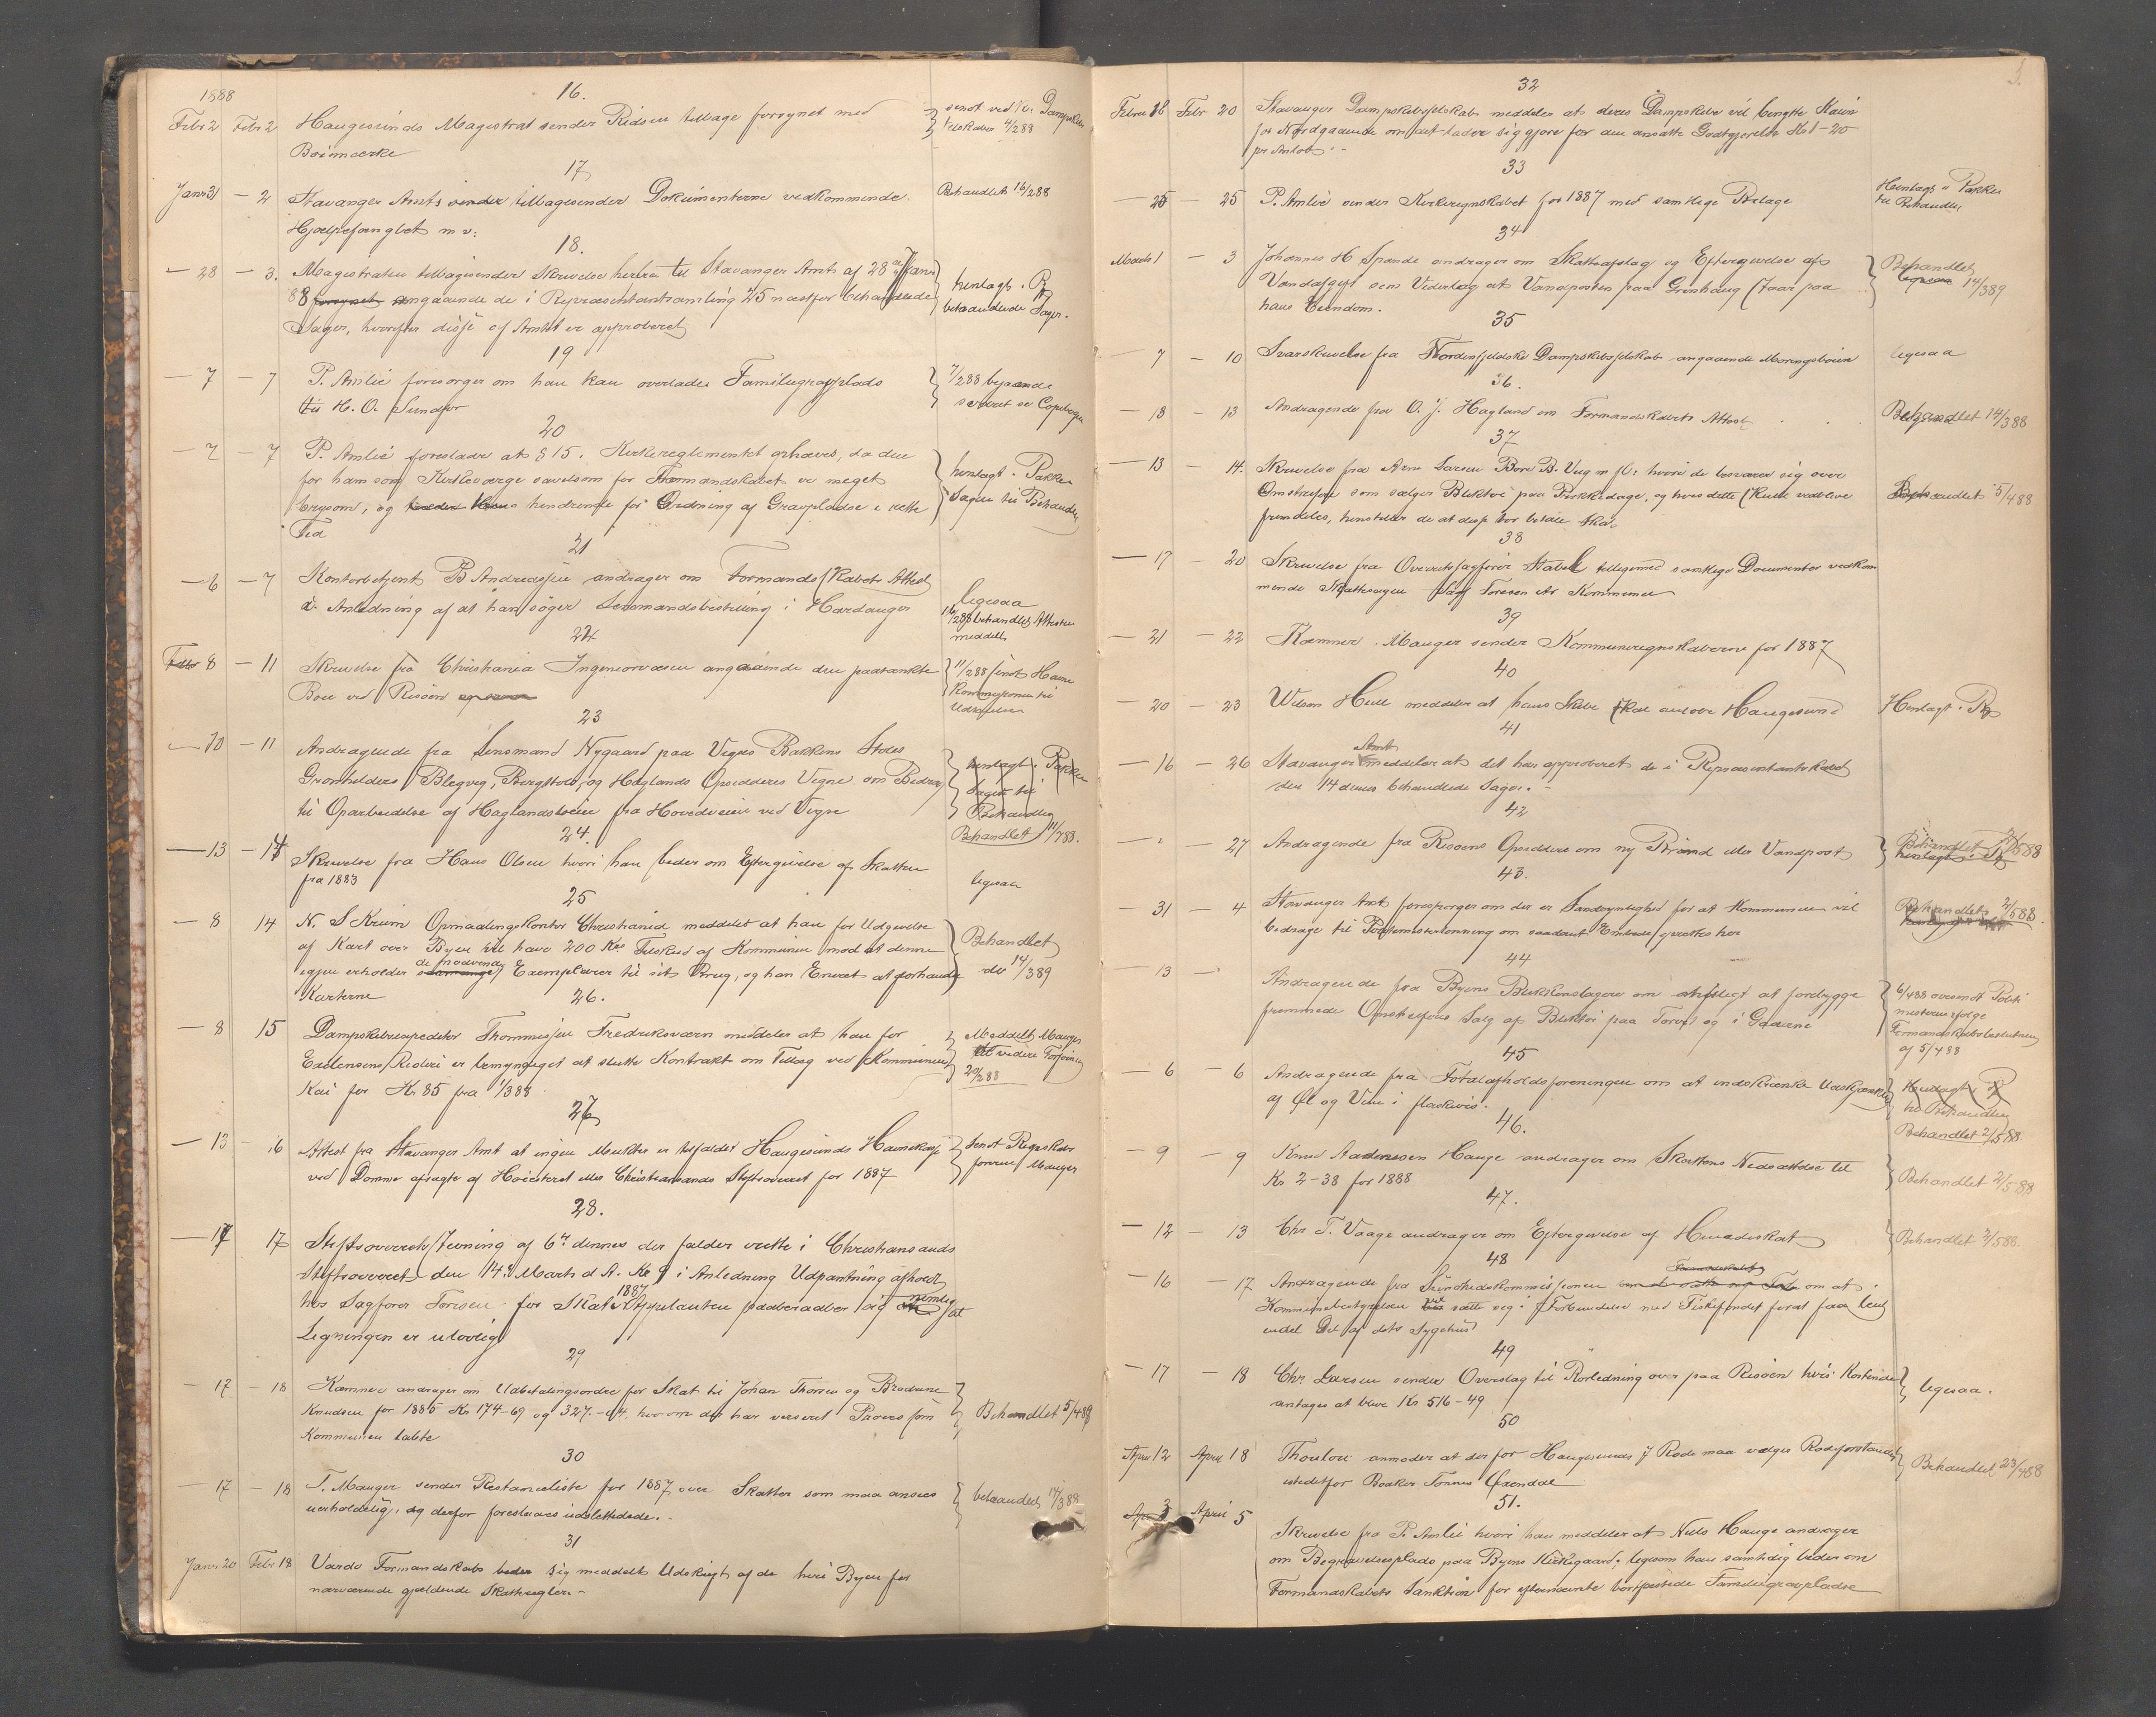 1888
16.
Febr 2 Febr 2 Haugesunds Magistrat sender Ridsen tilbage forsynet med sendt ved Dampskibs
Boimærke selskabet 4/2 88
17
Janr 31 - 2 Stavanger Amts tilbagesender Dokumenterne vedkommende Behandlet 16/2 88
Hjælpefængslet m v.
18.
- 28 - 3. Magistraten tilbagesender Skrivelse herfra til Stavanger Amt af 28de Janr
88 angaaende de i Repræsentantsamling næstfør behandlede henlagt i P
Sager, hvorefter disse af Amtet er approberet
19
- 7 - 7 P. Amlie foresporger om han kan overlades Familiegravplads 7/2 88
til H. O. Sundfør
20
- 7 - 7 P. Amlie foreslaar at § 15. Kirkereglementet ophæves, da den henlagt i Pakken
for ham som Kirkeværge saavelsom for Formandskabet er meget Sager til Behandling
brysom, og hindrende for Ordning af Gravpladse i rette
Tid
21
- 6 - 7 Kontorbetjent B Andreassen andrager om Formandskabets Attest ligesaa
i Anledning af at han søger Lensmandsbestilling i Hardanger 16/2 88 behandlet Attesten
meddelt
22
Febr 8 - 11 Skrivelse fra Christiania Ingeniorvæsen angaaende den paatænkte 11/2 88 sendt Havne
Boie ved Risøen Kommissionen til
Udtalelse
23
- 10 - 11 Andragende fra Lensmand Nygaard paa Vegne Bakkens Stoles henlagt i Pakken
Gronhilders Blegveg, Bergstøls, og Haglands Opsidderes Vegne om Bidrag Sager til
til Oparbeidelse af Haglandsveien fra Hovedveien ved Vigre Behandling
Behandlet
24.
- 13 - 14 Skrivelse fra Hans Olsen hvori han beder om Eftergivelse af Skatten
fra 1883 ligesaa
25
- 8 14 N. S Krum Opmaalingskontor Christiania meddeler at han for Udgivelse
af Kart over Byen vil have 200 Krs Tilskud af Kommunen mod at denne Behandlet
igjen erholder de fnødvendige Exemplarer til sit Brug, og han Eneret at forhandle 14/3 89
Karterne
26.
- 8 15 Dampskibsexpeditør Thommesen Fredriksværn meddeler at han for Meddelt Mauger
Exelensens Rederi er bemyndiget at slutte Kontrakt om Tillæg ved Kommunens til videre Forføining
Kai for Kr 85 fra 1/3 88 20/2 88
27
- 13 - 16 Attest fra Stavanger Amt at ingen Mulkter er tilfaldt Haugesunds Havnekasse Sendt Regnskabs
ved Domme afsagte af Hoiesteret eller Christiansands Stiftsoverret for 1887 føreren Mauger
28.
- 17 17 Stiftsoverretsstevning af 6te dennes der falder rette i Christiansands
Stiftsoverret den 14de Marts d A. Kl 9 i Anledning Udpantning afholdt
hos Sagfører Toresen for Skat 1887 Appelanten paaberaaber sig nemlig at
Ligningen er ulovlig
29
- 17 - 18 Kæmner andrager om Udbetalingsordre for Skat til Johan Thorsen og Brødrene
Knudsen for 1885 Kr 174-69 og 327.-64 hvorom der har verseret Proces som Behandlet 5/4 88
Kommunen tabte
30
- 17 - 18 T. Mauger sender Restanceliste for 1887 over Skatter som maa ansees behandlet 14/3 88
uerholdelig, og derfor foreslaaes udslettede.
31
Janr 20 Febr 18 Vardø Formandskab beder sig meddelt Udskrift af de hver Byen for
nærværende gjældende Skatteregler
32
Febru 18 Febr 20 Stavanger Dampskibsselskab meddeler at deres Dampskibe vil benytte Kaien
for Nordgaaende om det lader sig gjøre for den ansatte Godtgjorelse Kr 1-20
pr Anløb
33
- 25 - 25 P. Amlie sender Kirkeregnskabet for 1887 med samtlige Bilage Henlagt i Pakken
til Behandling
34
Marts 1 - 3 Johannes H Spande andrager om Skatteafslag og Eftergivelse af Behandlet
Vandafgift som Vederlag at Vandposten paa Grønhaug staar paa 14/3 89
hans Eiendom.
35
7 - 10 Svarskrivelse fra Nordenfjeldske Dampskibsselskab angaaende Moringsboien ligesaa
36.
- 13 - 13 Andragende fra O. J. Hagland om Formandskabets Attest Behandlet 14/3 88
37
- 13 - 14. Skrivelse fra Arne Larsen Bore B. Veg m fl. hvori de besværer sig over
Omstreifere som sælger Bliktøi paa Trækkedage, og hvis dette skulde vedblive Behandlet 5/4 88
fremdeles, henstiller de at disse bør betale Skat
38
- 17 - 20 Skrivelse fra Overretssagfører Stabel tilligemed samtlige Documenter vedkom
mende Skattesagen Sagf Toresen ctr Kommunen
39
- 21 - 22 Kæmner Mauger sender Kommuneregnskaberne for 1887
40
- 20 - 23 Wilson Hull meddeler at hans Skibe skal anløbe Haugesund Henlagt i P
41
- 16 - 26 Stavanger Amt meddeler at det har approberet de i Repræsentantskabet
den 14 dennes behandlede Sager.
42
- " - 27 Andragende fra Risøens Opsiddere om ny Brønd eller Vandpost Behandlet 2/5 88
43.
- 31 - 4 Stavanger Amt foresporger om der er Sandsynlighed for at Kommunen vil Behandlet 2/5 88
bidrage til Postmesterlønning om saadant Embede oprettes her
44
- 13 - Andragende fra Byens Blikkenslagere om at fordbygge 6/4 88 oversendt Politi
fremmede Omstreiferes Salg af Bliktøi paa Torvet og i Gaderne mesteren ifølge
Formandskabsbeslutning
af 5/4 88
45
- 6 - 6 Andragende fra Totalafholdsforeningen om at indskrænke Udskjænkning Henlagt i P
af Øl og Vin i flaskevis. til Behandling
Behandlet 2/5 88
46.
- 9 - 9 Knud Aadnesen Hauge andrager om Skattens Nedsættelse til
Kr 2-38 for 1888 Behandlet 2/5 88
47.
- 12 - 13 Chr T. Vaage andrager om Eftergivelse af Hundeskat Behandlet 2/5 88
48
- 16 - 17 Andragende fra Sundhedskommissionen om at
Kommunebestyrelsen vil sætte sig i Forbindelse med Fiskefondet forat faa leiet
endel Del af dets Sygehus
49
- 17 - 18 Chr Larsen sender Overslag til Rørledning over paa Risøen hvis Kostende ligesaa.
antages at blive Kr 516-49
50
Apr 12 April 18 Thoulow anmoder at der for Haugesunds 7 Rode maa vælges Rodeforstander Behandlet 23/4 88
istedetfor Baaker Tonnes Øxendal
51.
3 April 5 Skrivelse fra P. Amlie hvori han meddeler at Nils Hauge andrager
om Begravelsesplads paa Byens Kirkegaard; ligesom han samtidig beder om
Formandskabets Sanktion for eftternævnte bortfæstede Familiegravpladse